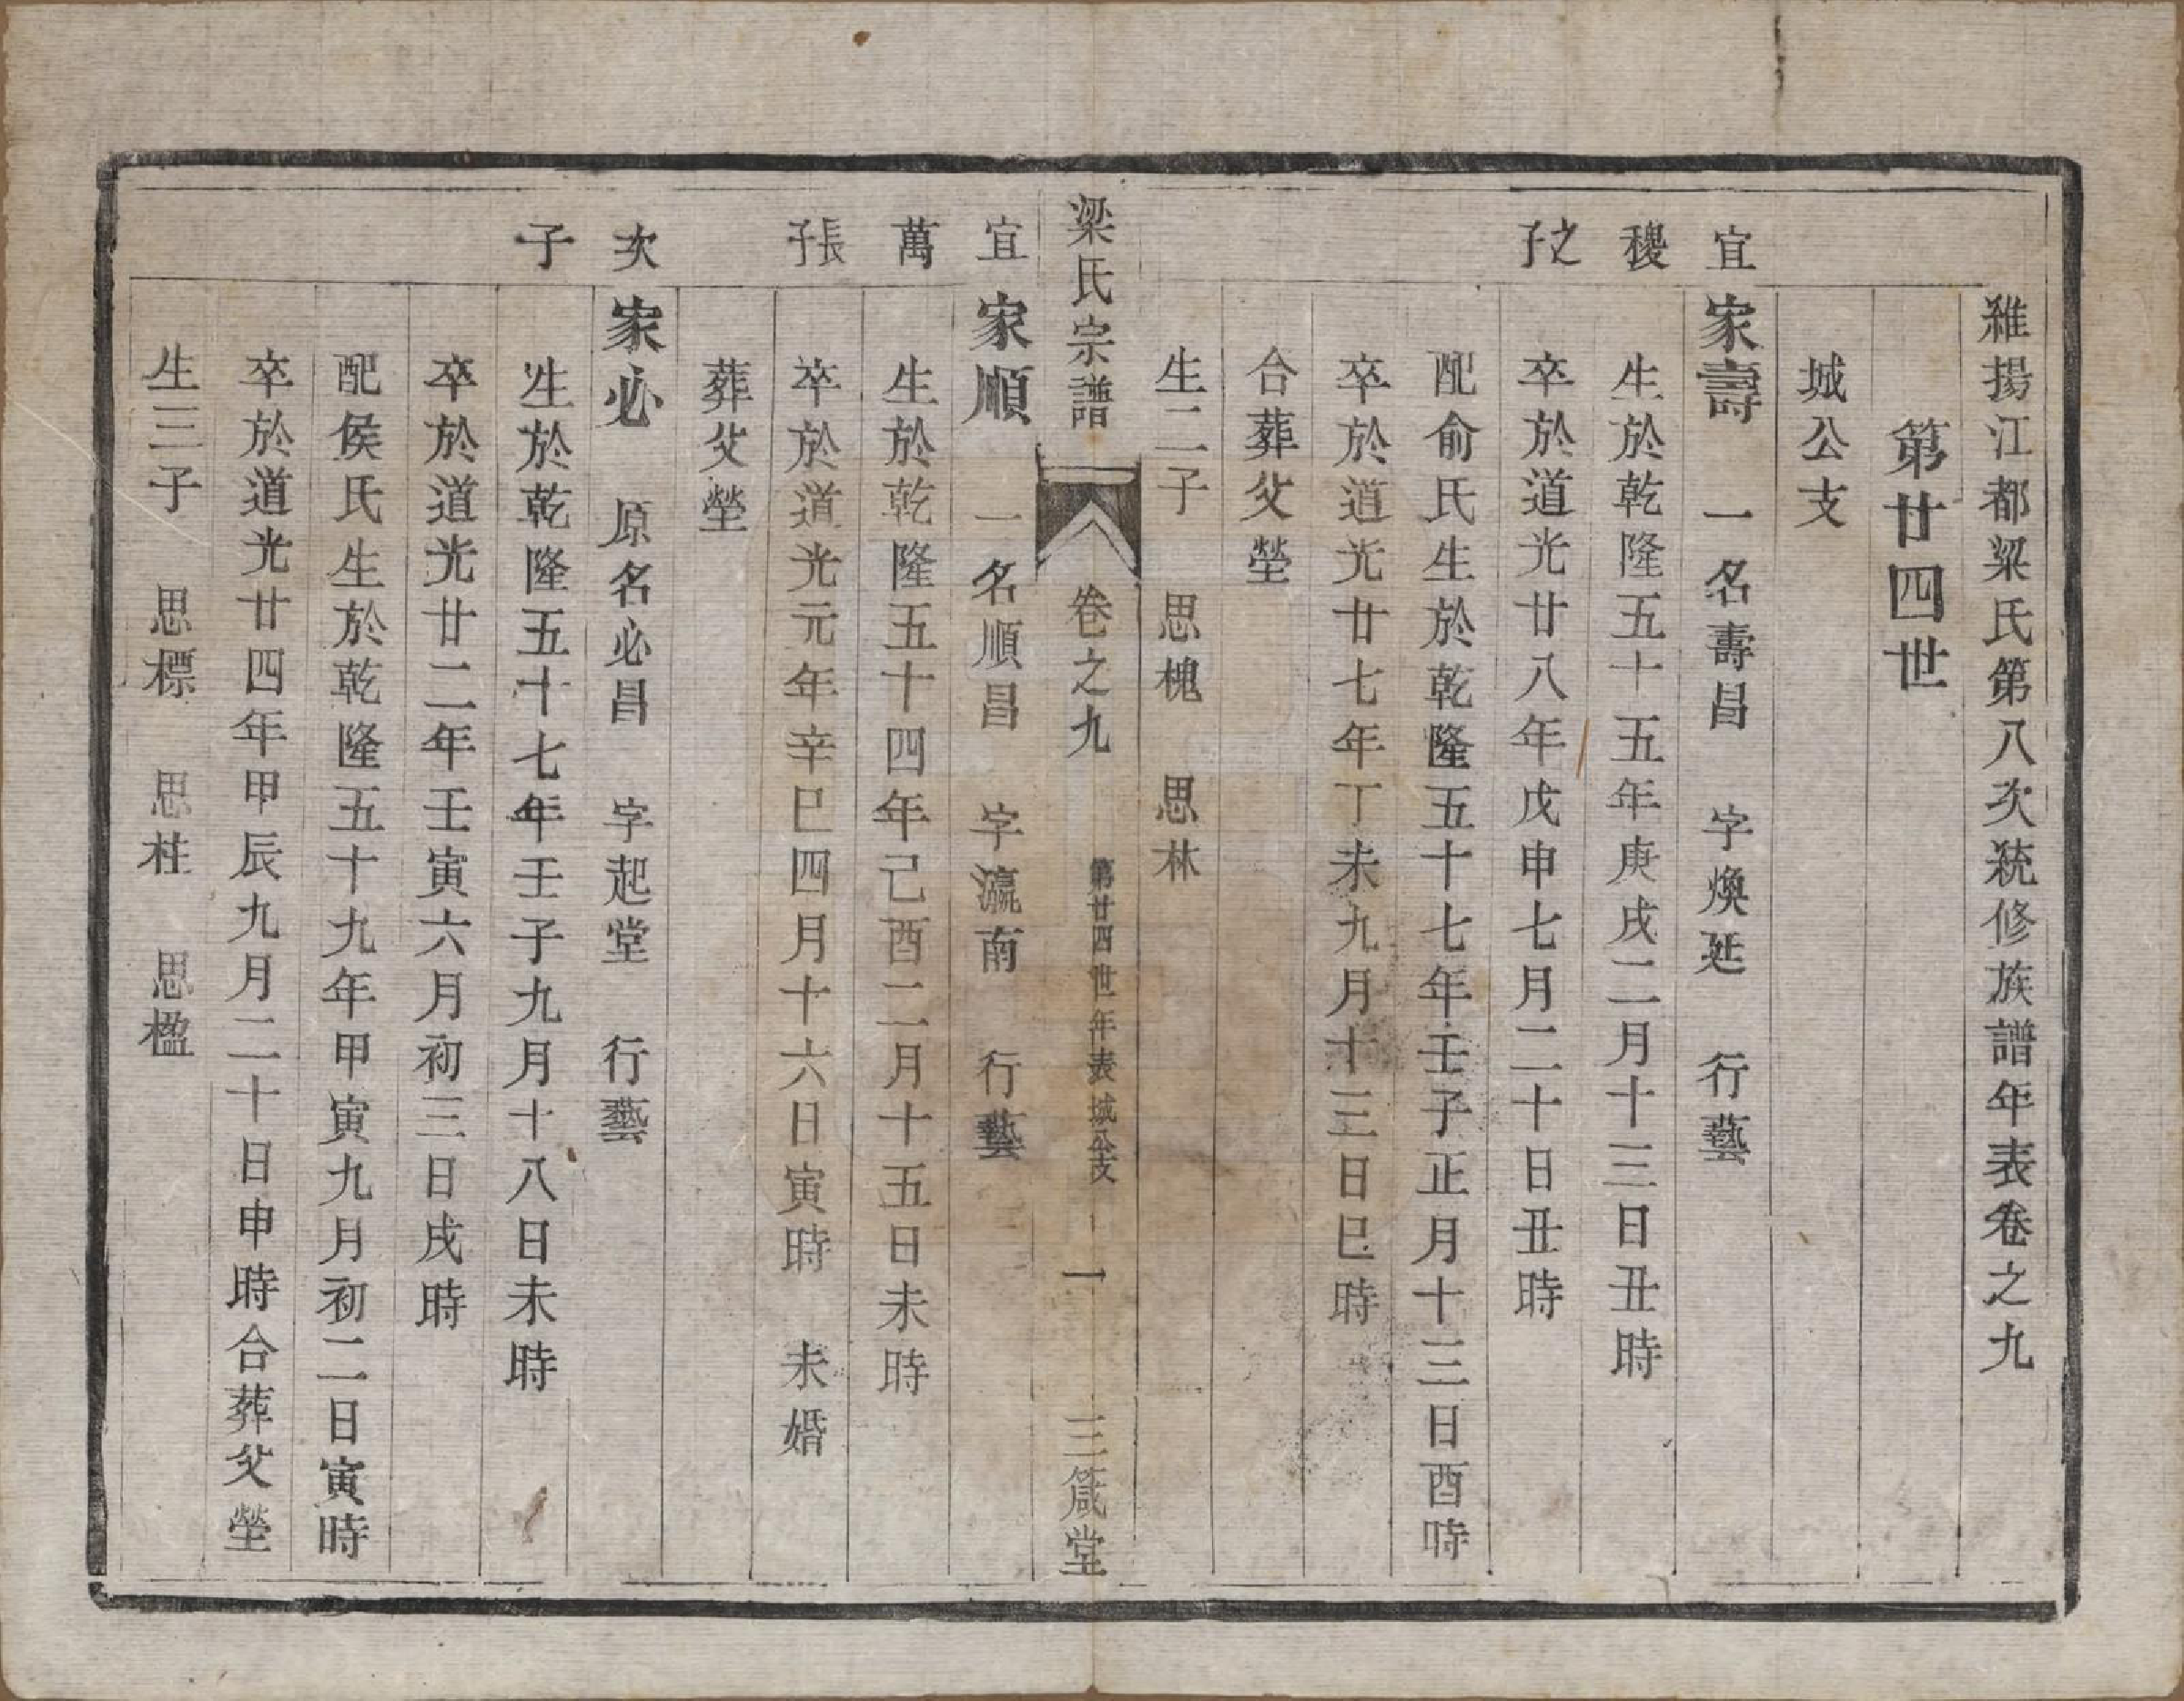 維揚江都梁氏第八次統修族譜年表卷之九
第廿四世
城公支
宜 家壽 一名壽昌 字煥延 行藝
稷 生於乾隆五十五年庚戌二月十三日丑時
之子 卒於道光廿八年戊申七月二十日丑時
配俞氏生於乾隆五十七年壬子正月十三日酉時
卒於道光廿七年丁未九月十三日巳時
合葬父塋
生二子 思槐 思林
梁氏宗譜 卷之九 第廿四世年表城公支 一 三箴堂
宜 家順 一名順昌 字瀛南 行藝
萬 生於乾隆五十四年己酉二月十五日未時
長子 卒於道光元年辛巳四月十六日寅時 未婚
葬父塋
次 家必 原名必昌 字起堂 行藝
子 生於乾隆五十七年壬子九月十八日未時
卒於道光廿二年壬寅六月初三日戌時
配侯氏生於乾隆五十九年甲寅九月初二日寅時
卒於道光廿四年甲辰九月二十日申時合葬父塋
生三子 思標 思柱 思楹